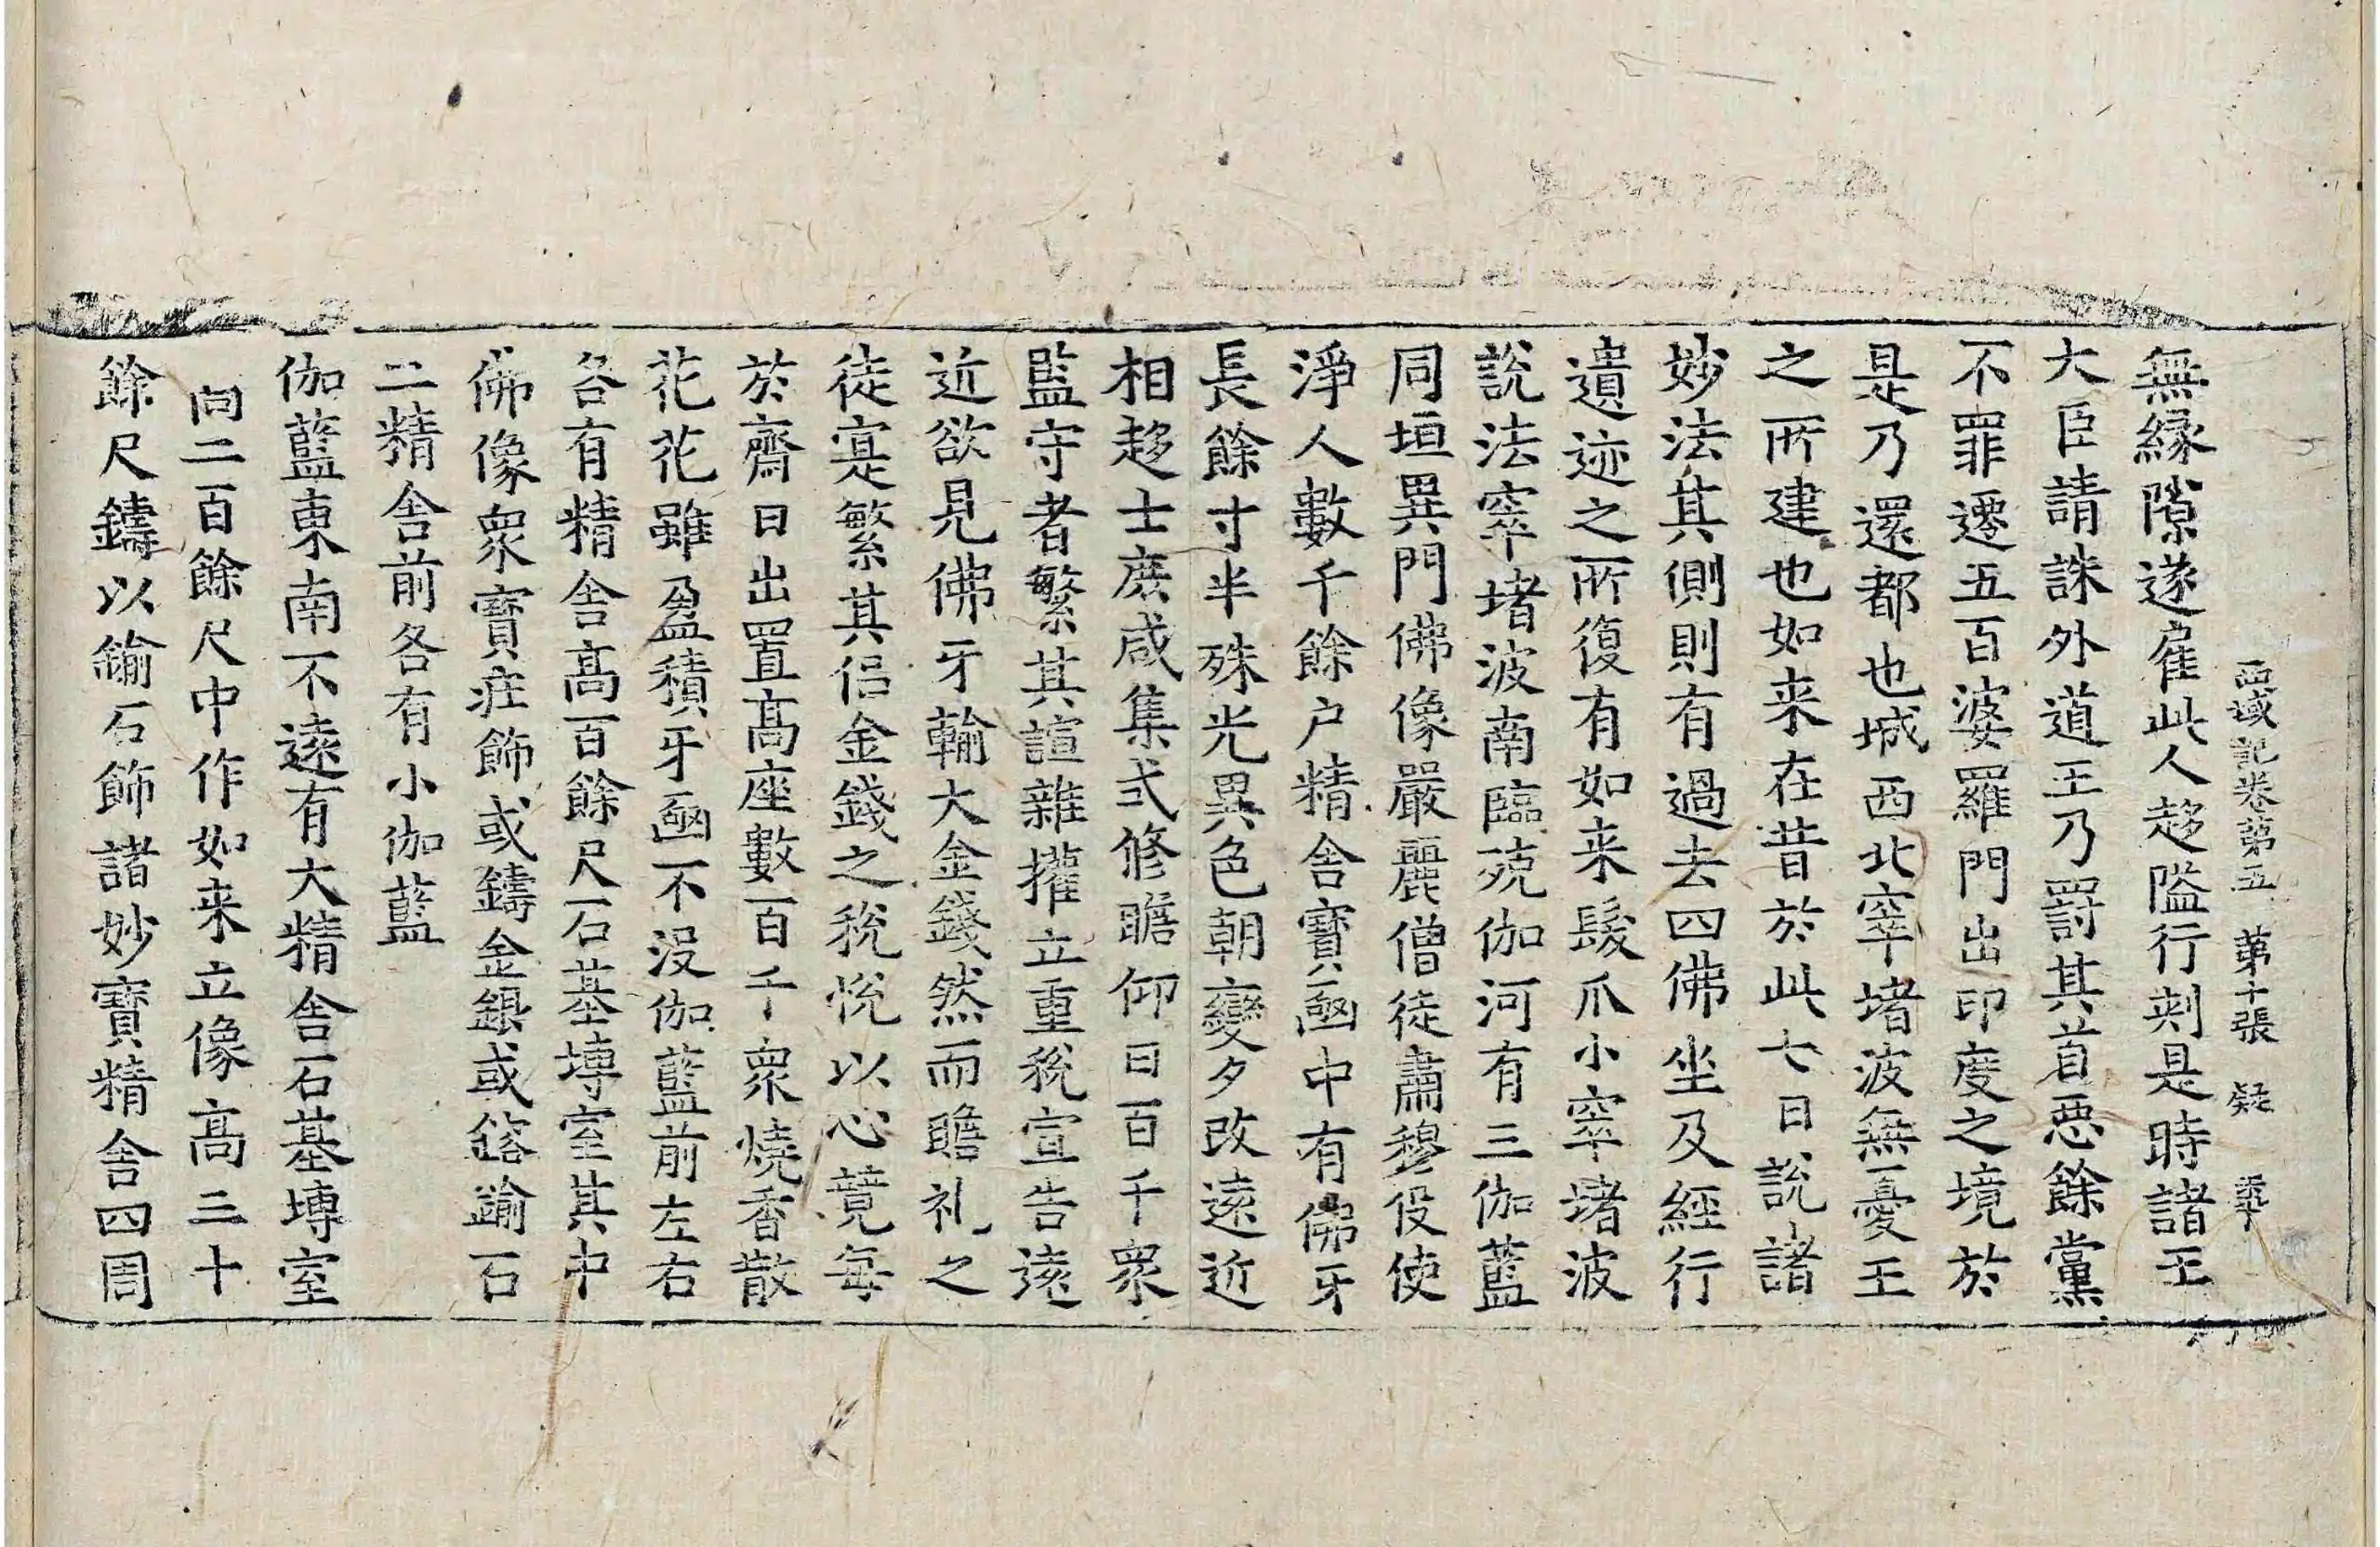 西域記卷第五 第十張 疑
無縁隙遂雇此人趍隘行刾是時諸王
大臣請誅外道王乃罸其首惡餘黨
不罪遷五百婆羅門出印度之境於
是乃還都也城西北窣堵波無憂王
之所建也如来在昔於此七日說諸
妙法其側則有過去四佛坐及經行
遺迹之所復有如来髮爪小窣堵波
說法窣堵波南臨殑伽河有三伽藍
同垣異門佛像嚴麗僧徒肅穆伇使
淨人數千餘户精舍寶凾中有佛牙
長餘寸半殊光異色朝變夕改遠近
相趍士庶咸集式修瞻仰日百千衆
監守者繁其諠雜攉立重稅宣告遠
近欲見佛牙輸大金錢然而瞻礼之
徒寔繁其侣金錢之稅恱以心競每
於齋日出置髙座數百千衆燒香散
花花雖盈積牙凾不没伽藍前左右
各有精舍髙百餘尺石基塼室其中
佛像衆寶疘飾或鑄金銀或鎔鍮石
二精舍前各有小伽藍
伽藍東南不遠有大精舍石基塼室
向二百餘尺中作如来立像髙三十
餘尺鑄以鍮石飾諸妙寶精舍四周